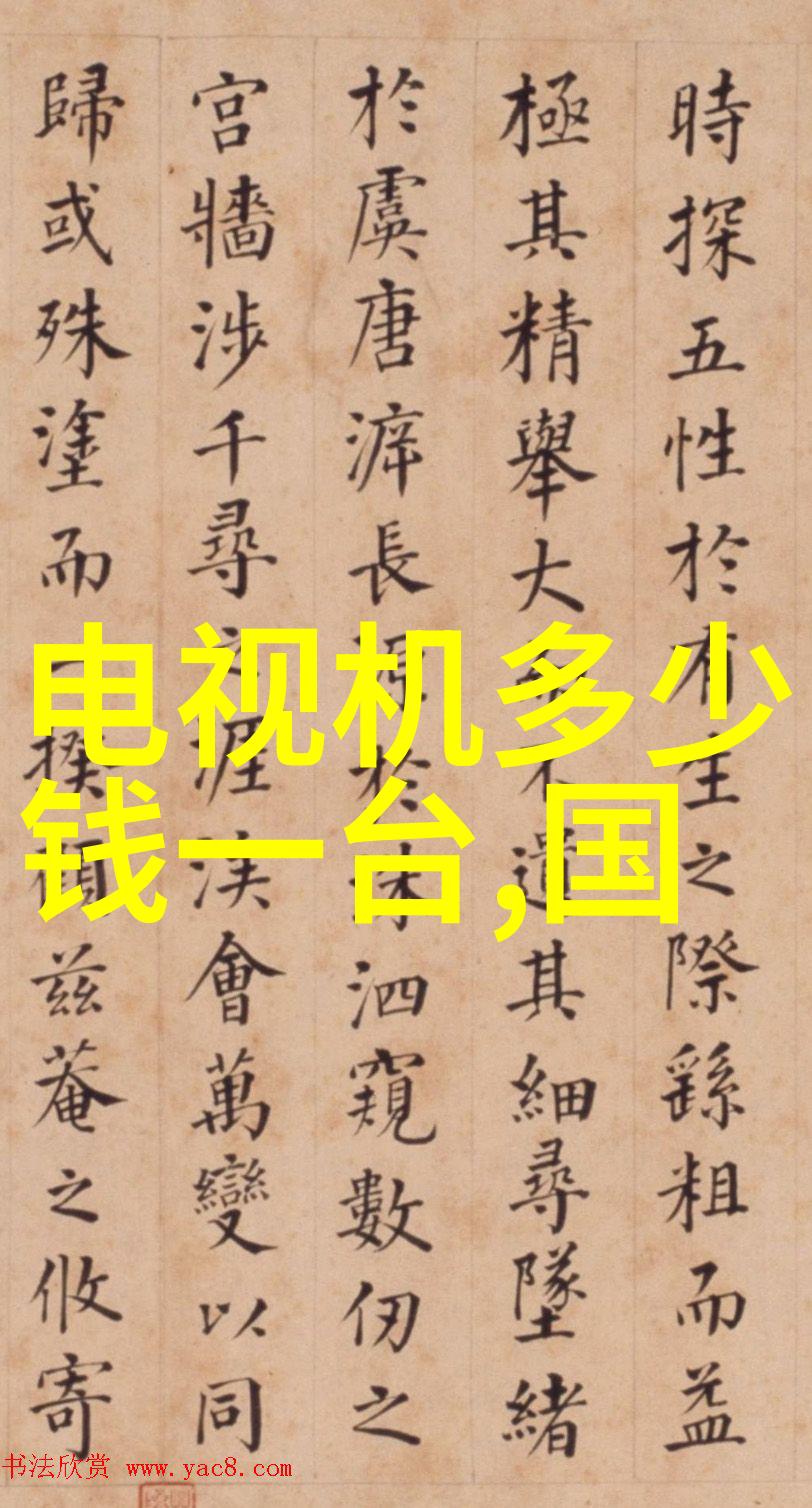 時探五性於有生之際繇粗而益
極其精舉大而不遺其細尋墜緒
於虞唐長源於洙泗窺數仞之
宫牆涉千尋之涯涘會萬變以同
歸或殊塗而一揆顧兹菴之攸寄
电视机多少
钱一台,国
书法欣赏 www.yac8.com